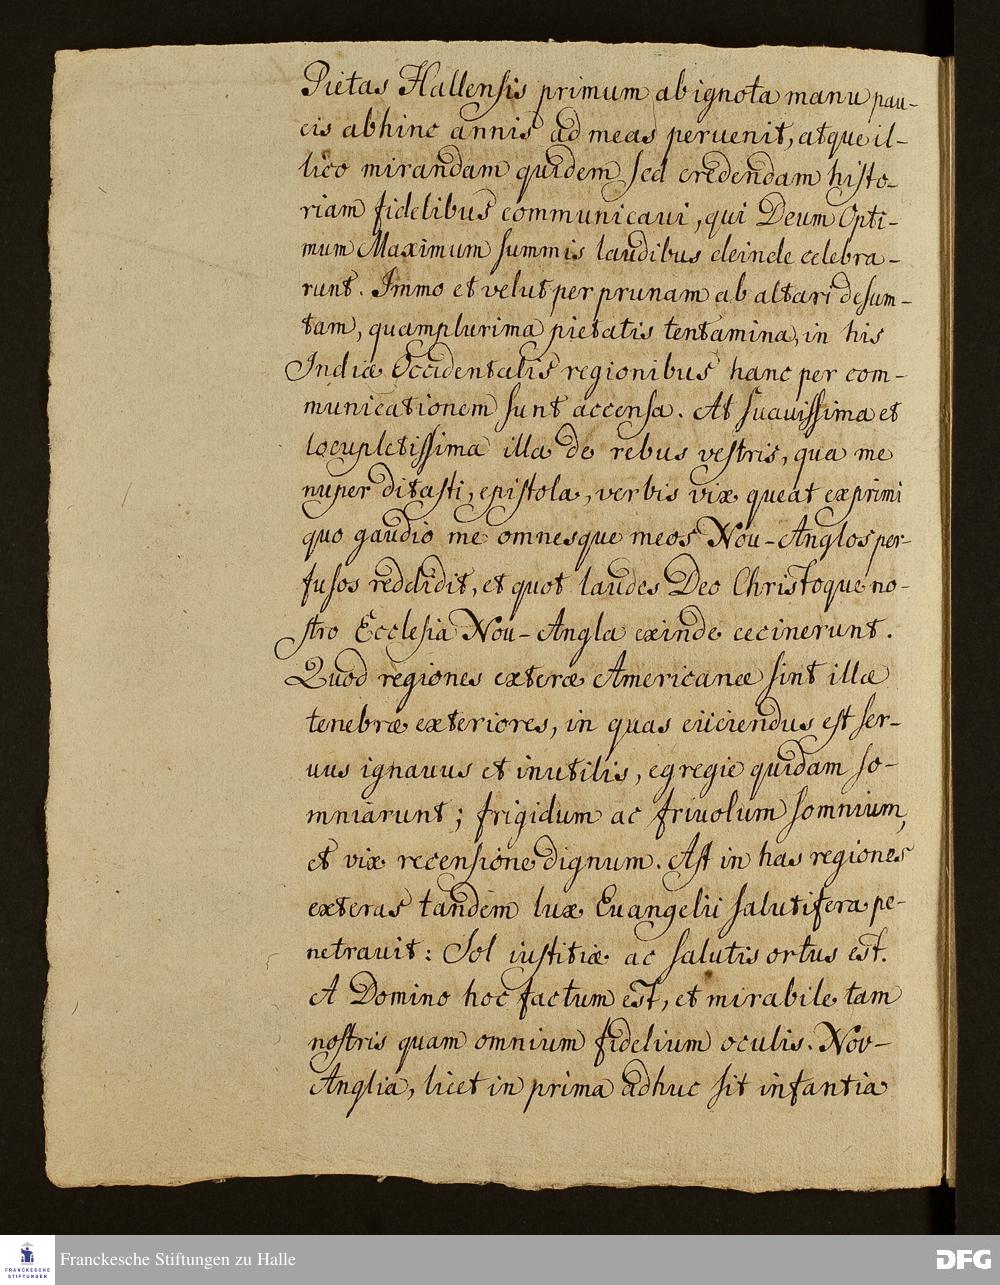 Pietas Hallensis primum ab ignota manu pau-
cis abhinc annis ad meas peruenit, atque il-
lico mirandam quidem sed credendam histo-
riam fidelibus communicaui, qui Deum Opti-
mum Maximum summis laudibus deinde celebra-
runt. Immo et velut per prunam ab altari desum-
tam, quamplurima pietatis tentamina, in his
Indiæ Occidentalis regionibus hanc per com-
municationem sunt accensa. At suauissima et
locupletissima illa de rebus vestris, qua me
nuper ditasti, epistola, verbis vix queat exprimi
quo gaudio me omnesque meos Nou-Anglos per-
fusos reddidit, et quot laudes Deo Christoque no-
stro Ecclesia Nou-Angla exinde cecinerunt.
Quod regiones exteræ Americanæ sint illæ
tenebræ exteriores, in quas eiiciendus est ser-
uus ignauus et inutilis, egregie quidam so-
mniarunt; frigidum ac friuolum somnium,
et vix recensione dignum. Ast in has regiones
exteras tandem lux Euangelii salutifera pe-
netrauit: Sol iustitiæ ac salutis ortus est.
A Domino hoc factum est, et mirabile tam
nostris quam omnium fidelium oculis. Nov-
Anglia, licet in prima adhuc sit infantia
Franckesche Stiftungen zu Halle
FRANCKESCHE
STIFTUNGEN
DFG